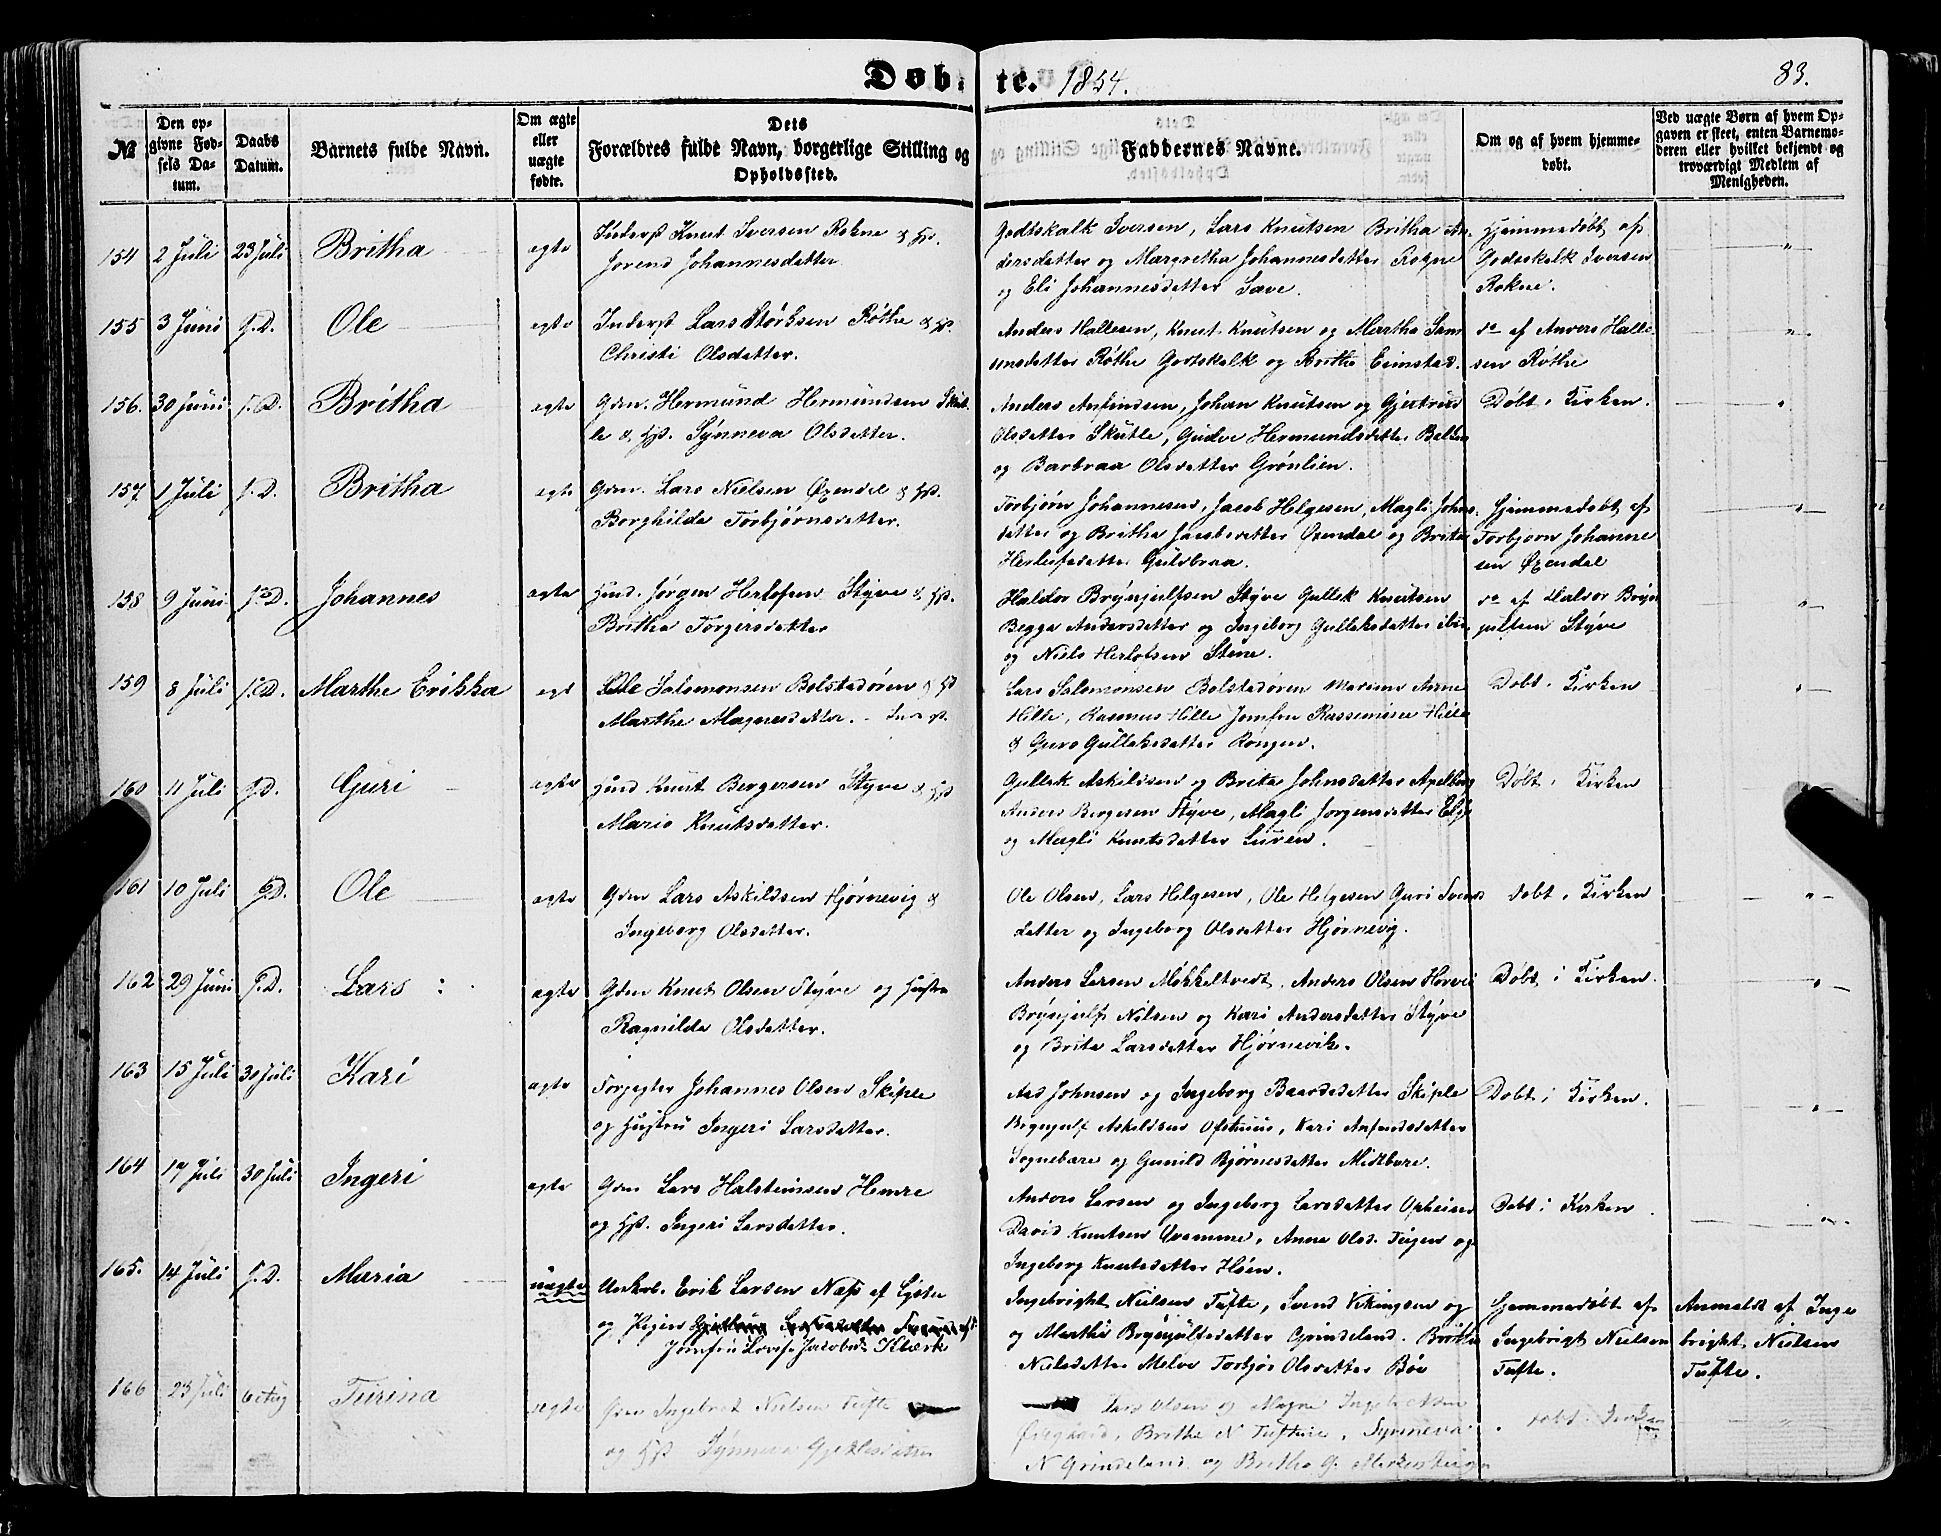 Døbte. 1854. 83.
№ | Den opgivne Fødsels Datum. | Daabs Datum. | Barnets fulde Navn. | Om ægte eller uægte fødte. | Dets Forældres fulde Navn, borgerlige Stilling og Opholdssted. | Faddernes Navne. | Om og af hvem hjemmedøbt. | Ved uægte Børn af hvem Opgaven er skeet, enten Barnemoderen eller hvilket bekjendt og troværdigt Medlem af Menigheden.
154 2 Juli 23 Juli Britha ægte Inderst Knut Iversen Rokne & Hst. Godtskalk Iversen, Lars Knutsen Britha An- Hjemmedøbt af "
Jorend Johannesdatter dersdatter og Margretha Johannesdatter Rogne Godtskalk Iversen
og Eli Johannesdatter Save. Rokne.
155 3 Juni S.D. Ole ægte Inderst Lars Størksen Røthe & Hst. Anders Hallesen, Knut Knutsen og Martha Sam do af Anders Halle "
Christi Olsdatter. sonsdatter Røthe Godtskalk og Britha Eimstad. sen Røthe
156. 30 Juni S.D. Britha ægte Gdm. Hermund Hermundsen Skut- Anders Anfindsen, Johan Knutsen og Gjertrud Døbt i Kirken. "
le & Hst. Synneva Olsdatter. Olsdatter Skutle, Gudve Hermundsdatter
og Barbraa Olsdatter Grønlien.
157. 1 Juli S.D. Britha ægte Gdm. Lars Nielsen Øxendal & Hst. Torbjørn Johannesen, Jacob Helgesen, Magli Johns- Hjemmedøbt af "
Borghilda Torbjørnsdatter. datter og Britha Jacobsdatter Øxendal og Brita Torbjørn Johanne
Herlofsdatter Guldbraa. sen Øxendal
158 9 Juni S.D. Johannes ægte Huusd. Jørgen Herlofsen Styve & Hst. Haldor Brynjulfsen Styve Gullek Knutsen do af Haldor Bryn "
Britha Torgersdatter Begga Andersdatter og Ingeborg Gullaksdatter ibid. julfsen Styve
og Niels Herlofsen Stene.
159 8 Juli S.D. Marthe Erikka ægt Ole Salomonsen Bolstadøren & Hst Lars Salomonsen Bolstadøren Madame Anne Døbt i Kirken "
Marthe Magnesdatter. Hille, Rasmus Hille Jomfru Rassemine Hille
& Guro Gullaksdatter Rongen.
160 11 Juli S.D. Guri ægte Huusd Knut Bergersen Styve & Hst Gullek Askildsen og Brita Johnsdatter Døbt i Kirken "
Mario Knutsdatter. Anders Bergesen Styve, Magli Jørgensdatter
og Magli Knutsdatter Luren.
161 10 Juli S.D. Ole ægte Gdm Lars Askildsen Hjørnevig & Ole Olsen, Lars Helgesen, Ole Helgesen Guri Svends Døbt i Kirken "
Ingeborg Olsdatter. datter og Ingeborg Olsdatter Hjørnevig.
162 29 Juni S.D. Lars ægte Gdm Knut Olsen Styve og Hustru Anders Larsen Møkkeltvedt, Anders Olsen Horvei Døbt i Kirken. "
Ragnilda Olsdatter. Brynjulf Nilsen og Kari Andersdatter Styve
og Brita Larsdatter Hjørnevik.
163 15 Juli 30 Juli Kari ægte Forpagter Johannes Olsen Skiple Aad Johnsen og Ingeborg Baardsdatter Skiple Døbt i Kirken. "
og Hustru Ingeri Larsdatter. Brynjulf Askildsen Ofsthuus, Kari Anfindsdatter
Sognebære og Gunild Bjørnesdatter Midtbøre.
164 19 Juli 30 Juli Ingeri ægte Gdm Lars Halsteinsen Hemre Anders Larsen og Ingeborg Larsdatter Opheim Døbt i Kirken "
og Hst. Ingeri Larsdatter. David Knutsen Qvamme, Anna Olsd. Tugen og
Ingeborg Knutsdatter Høen.
165. 14 Juli S.D. Maria uægte Unkrl. Erik Larsen Næs af Lyster Ingebright Nielsen Tufte, Svend Vikingsen og Hjemmedøbt af Anmeldt af Inge
og Pigen og Martha Brynjulfsdatter Grindeland. Britha Ingebrigt Nielsen bright Nielsen
Jomfru Lovise Jacobine Klærk Nielsdatter Melve Torbjør Olsdatter Bøe Tufte. Tufte.
166 23 Juli 6 Aug Turina ægte Gdm Ingebret Nielsen Tufte Lars Olsen og Magne Døbt i Kirken "
og Hst Synneva Britha N Tufteie, Synneva
N Grindeland og Britha G.